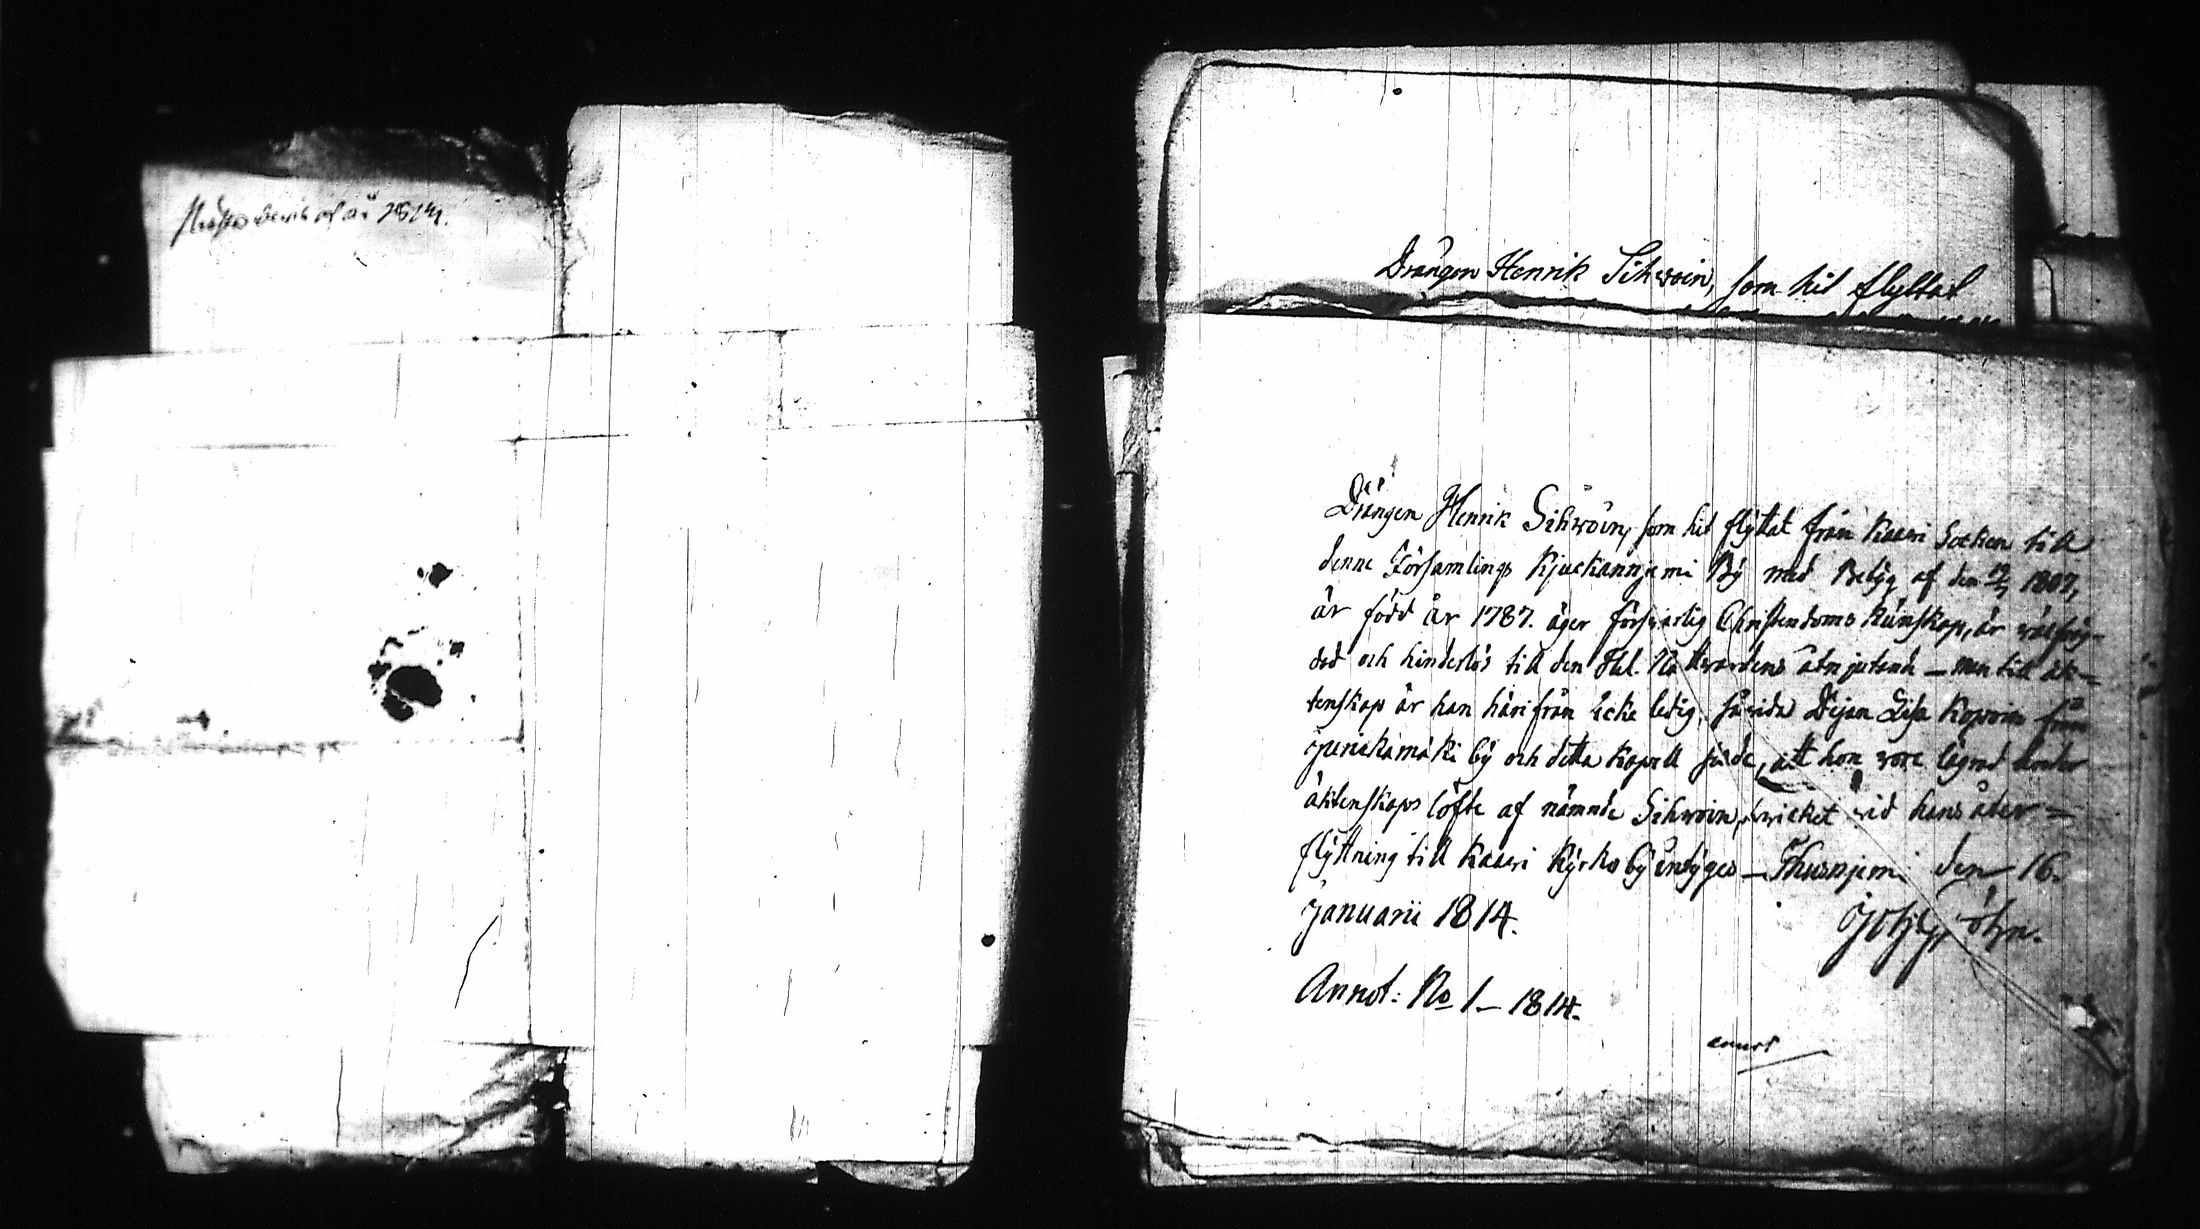 bevis af år 1814.
Drängen Henrik Sihwoin, som hit flyttat
Drängen Henrik Sihwoin, som hit flyttat från Kaavi Socken till
denne Församlings Kjuckanniemi By med Betyg af den 1807,
är född år 1787. äger försvarlig Christendoms kunskap, är välfräg-
dad och hinderlös till den Hel. Nattvardens åtnjutande – men till äk-
tenskap är han härifrån icke ledig, såvida Pigan Lisa Kopoin från
Junickamäki by och detta Kapell säde, att hon vore lägrad under
äktenskaps löfte af nämnde Sihwoin, hvicket vid hans åter-
flyttning till Kaavi Kyrko by intygas – den 16.
Januarii 1814.
Annot: No 1 – 1814.